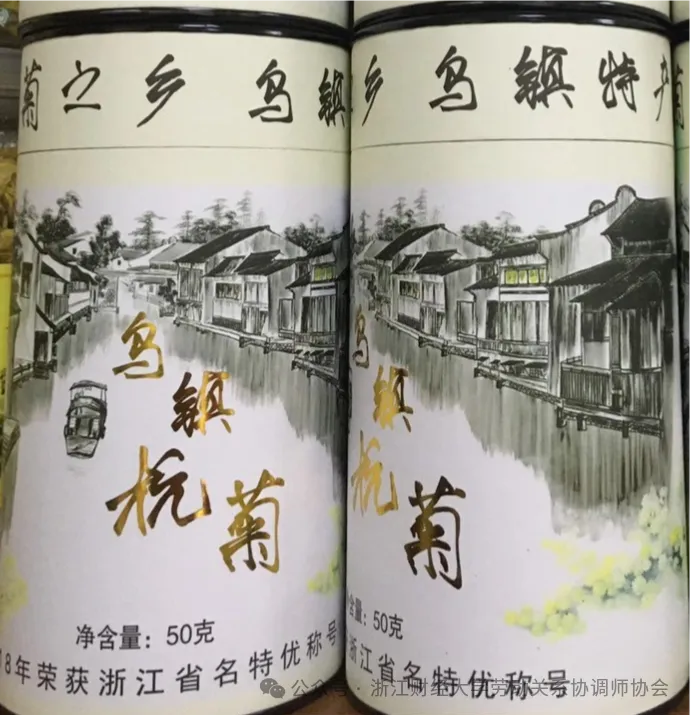 菊之乡 乌镇
乡 乌镇特产
乌镇杭菊
乌镇杭菊
净含量：50克
含量：50克
18年荣获浙江省名特优称号
浙江省名特优称号
公众号·浙江财经大学劳动关系协调师协会